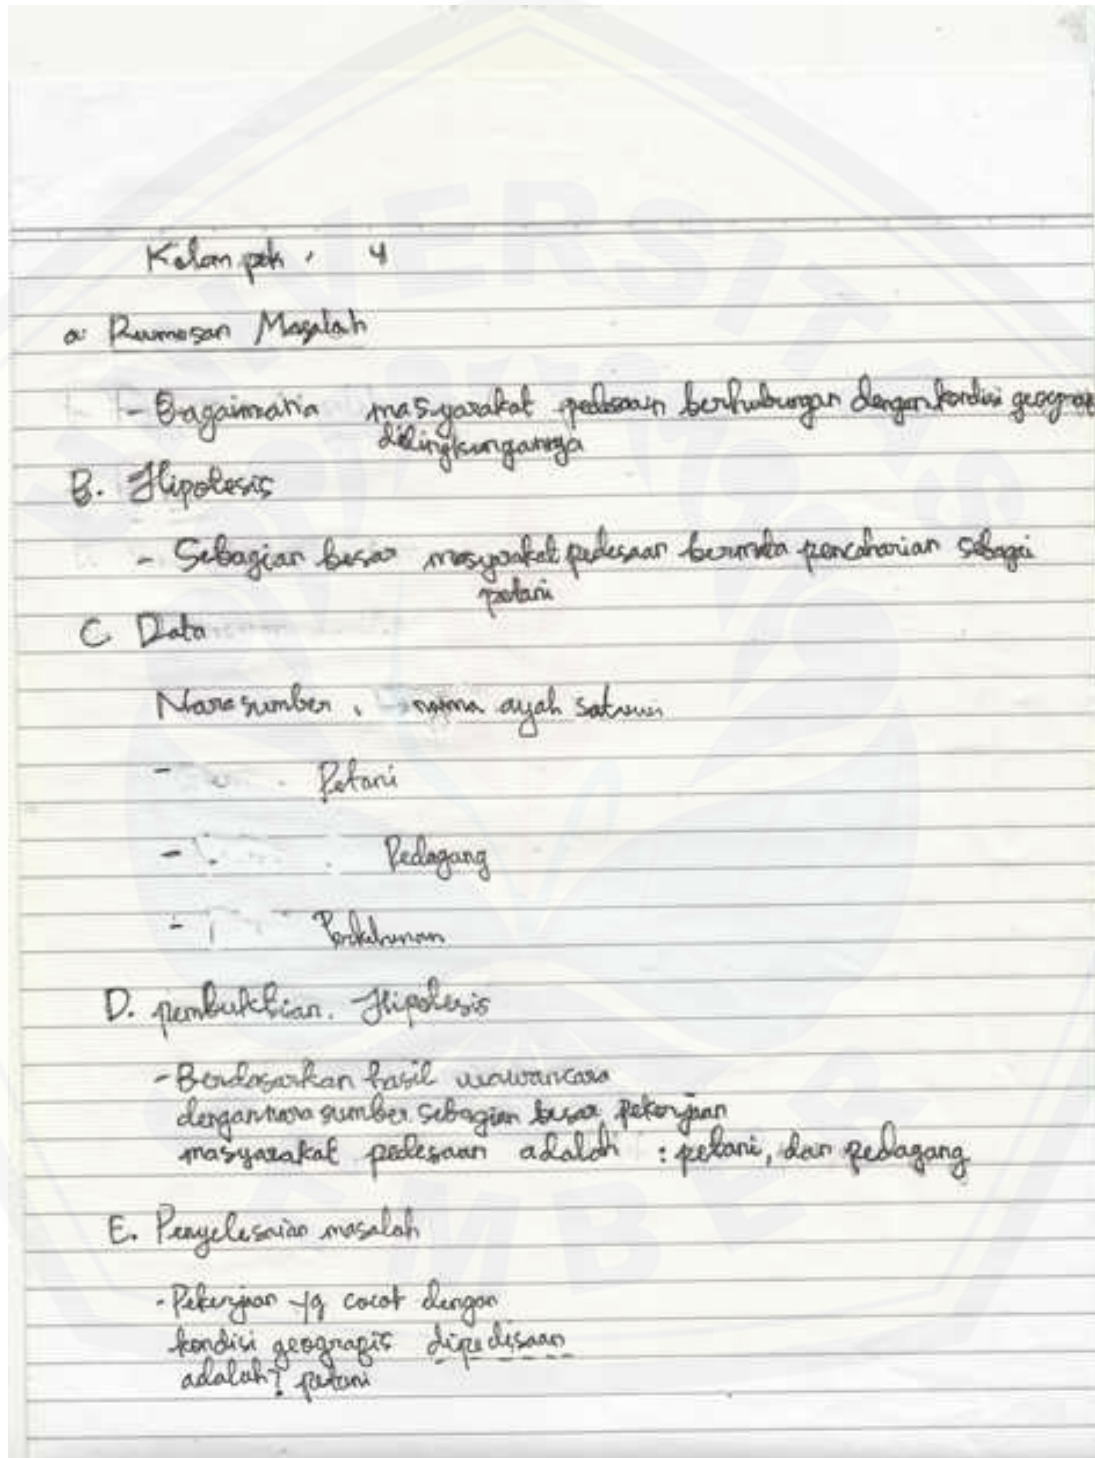 Kelompok, 4
a. Rumosan Masalah
- Bagaimana masyarakat pedesaan berhubungan dengan kondisi geograp
dilingkungannya
B. Hipotesis
- Sebagian besar masyarakat pedesaan bermata pencaharian sebagai
petani
C. Data
Narasumber, nama ayah
- Petani
- Pedagang
- Perkebunan
D. pembuktian. Hipotesis
- Berdasarkan hasil wawancara
dengan nara sumber. Sebagian besar pekerjaan
masyarakat pedesaan adalah : petani, dan pedagang
E. Penyelesaian masalah
- Pekerjaan yg cocot dengan
kondisi geograpis dipedesaan
adalah? petani
UNIVERSITAS
JEMBER